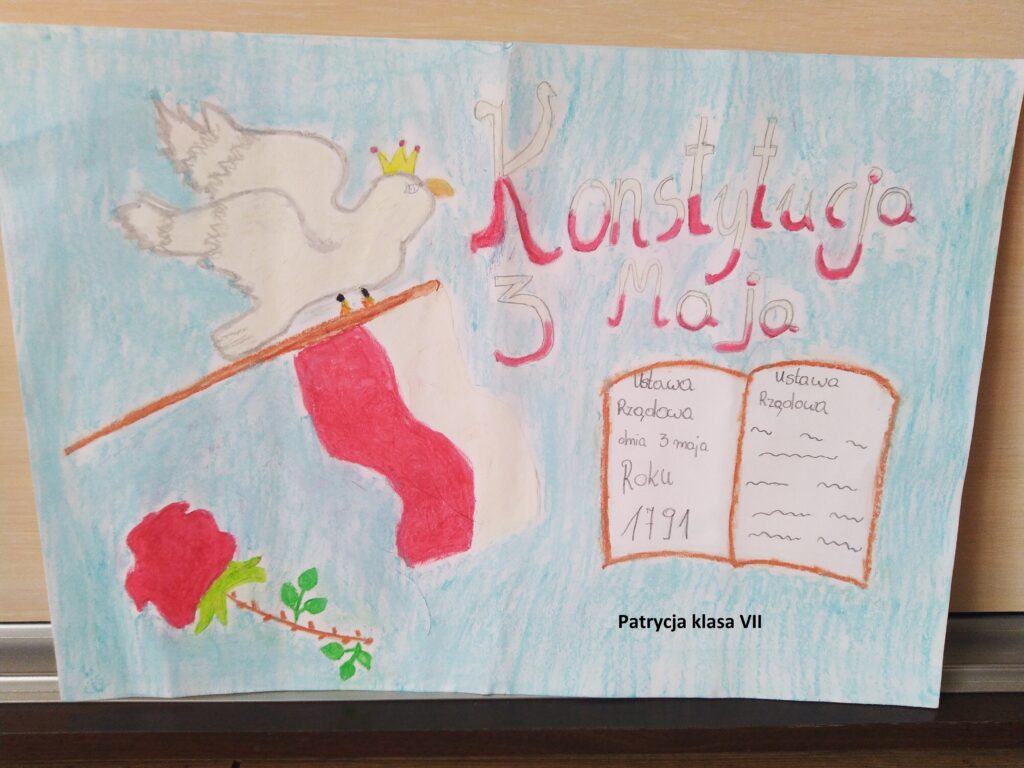 Konstytucja
3 Maja
Ustawa
Rządowa
dnia 3 maja
Roku
1791
Ustawa
Rządowa
Patrycja klasa VII